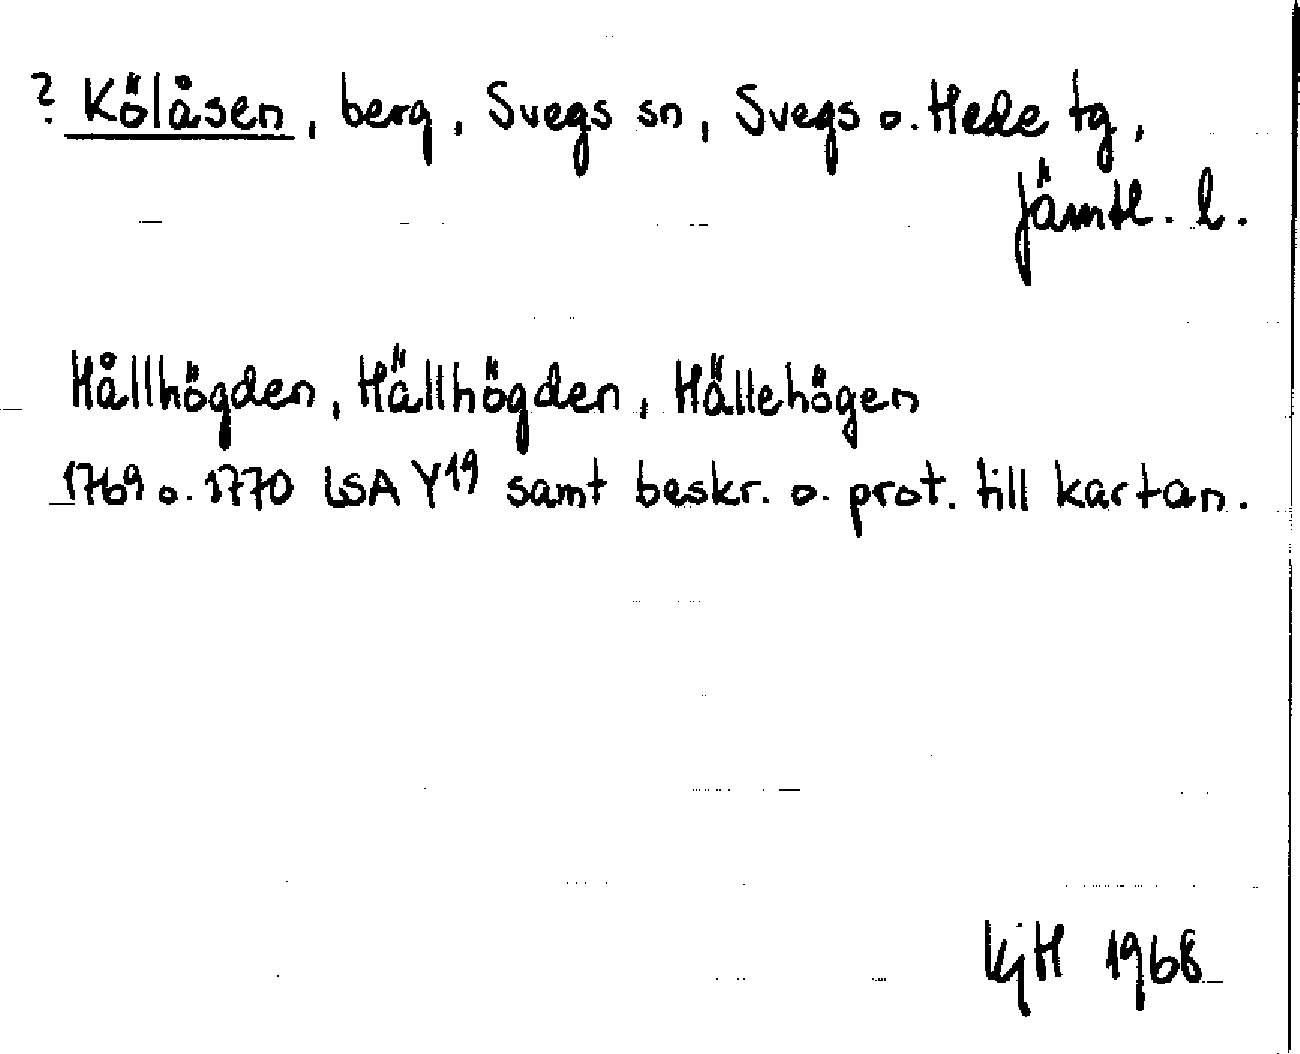 ? Kölåsen, berg, Svegs sn, Svegs o. Hede tg,
Jämtl. l.
Hållhögden, Hällhögden, Hällehögen
1769 o. 1770 LSA Y19 samt beskr. o. prot. till kartan.
KjH 1968